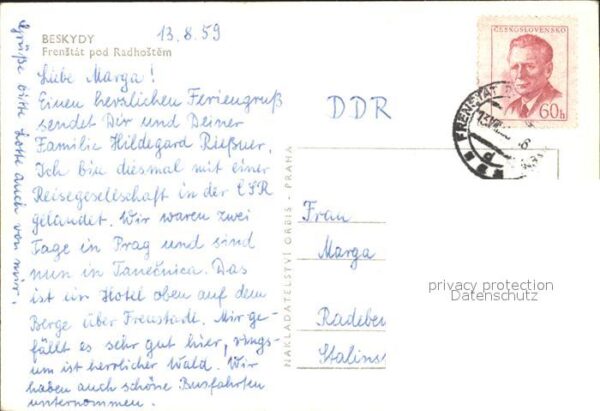 BESKYDY
Frenštát pod Radhoštěm
13.8.59
Liebe Marga!
Einen herzlichen Feriengruß
sendet Dir und Deiner
Familie Hildegard Rießner.
Ich bin diesmal mit einer
Reisegesellschaft in der ČSR
gelandet. Wir waren zwei
Tage in Prag und sind
nun in Tanečnica. Das
ist ein Hotel oben auf dem
Berge über Frenstadt. Mir ge-
fällt es sehr gut hier, rings-
um ist herrlicher Wald. Wir
haben auch schöne Busfahrten
unternommen.
Grüße bitte Lotte auch von mir.
NAKLADATELSTVÍ ORBIS - PRAHA
ČESKOSLOVENSKO
60h
FRENŠTÁT
DDR
Frau
Marga
Radeber
Stalins
privacy protection
Datenschutz